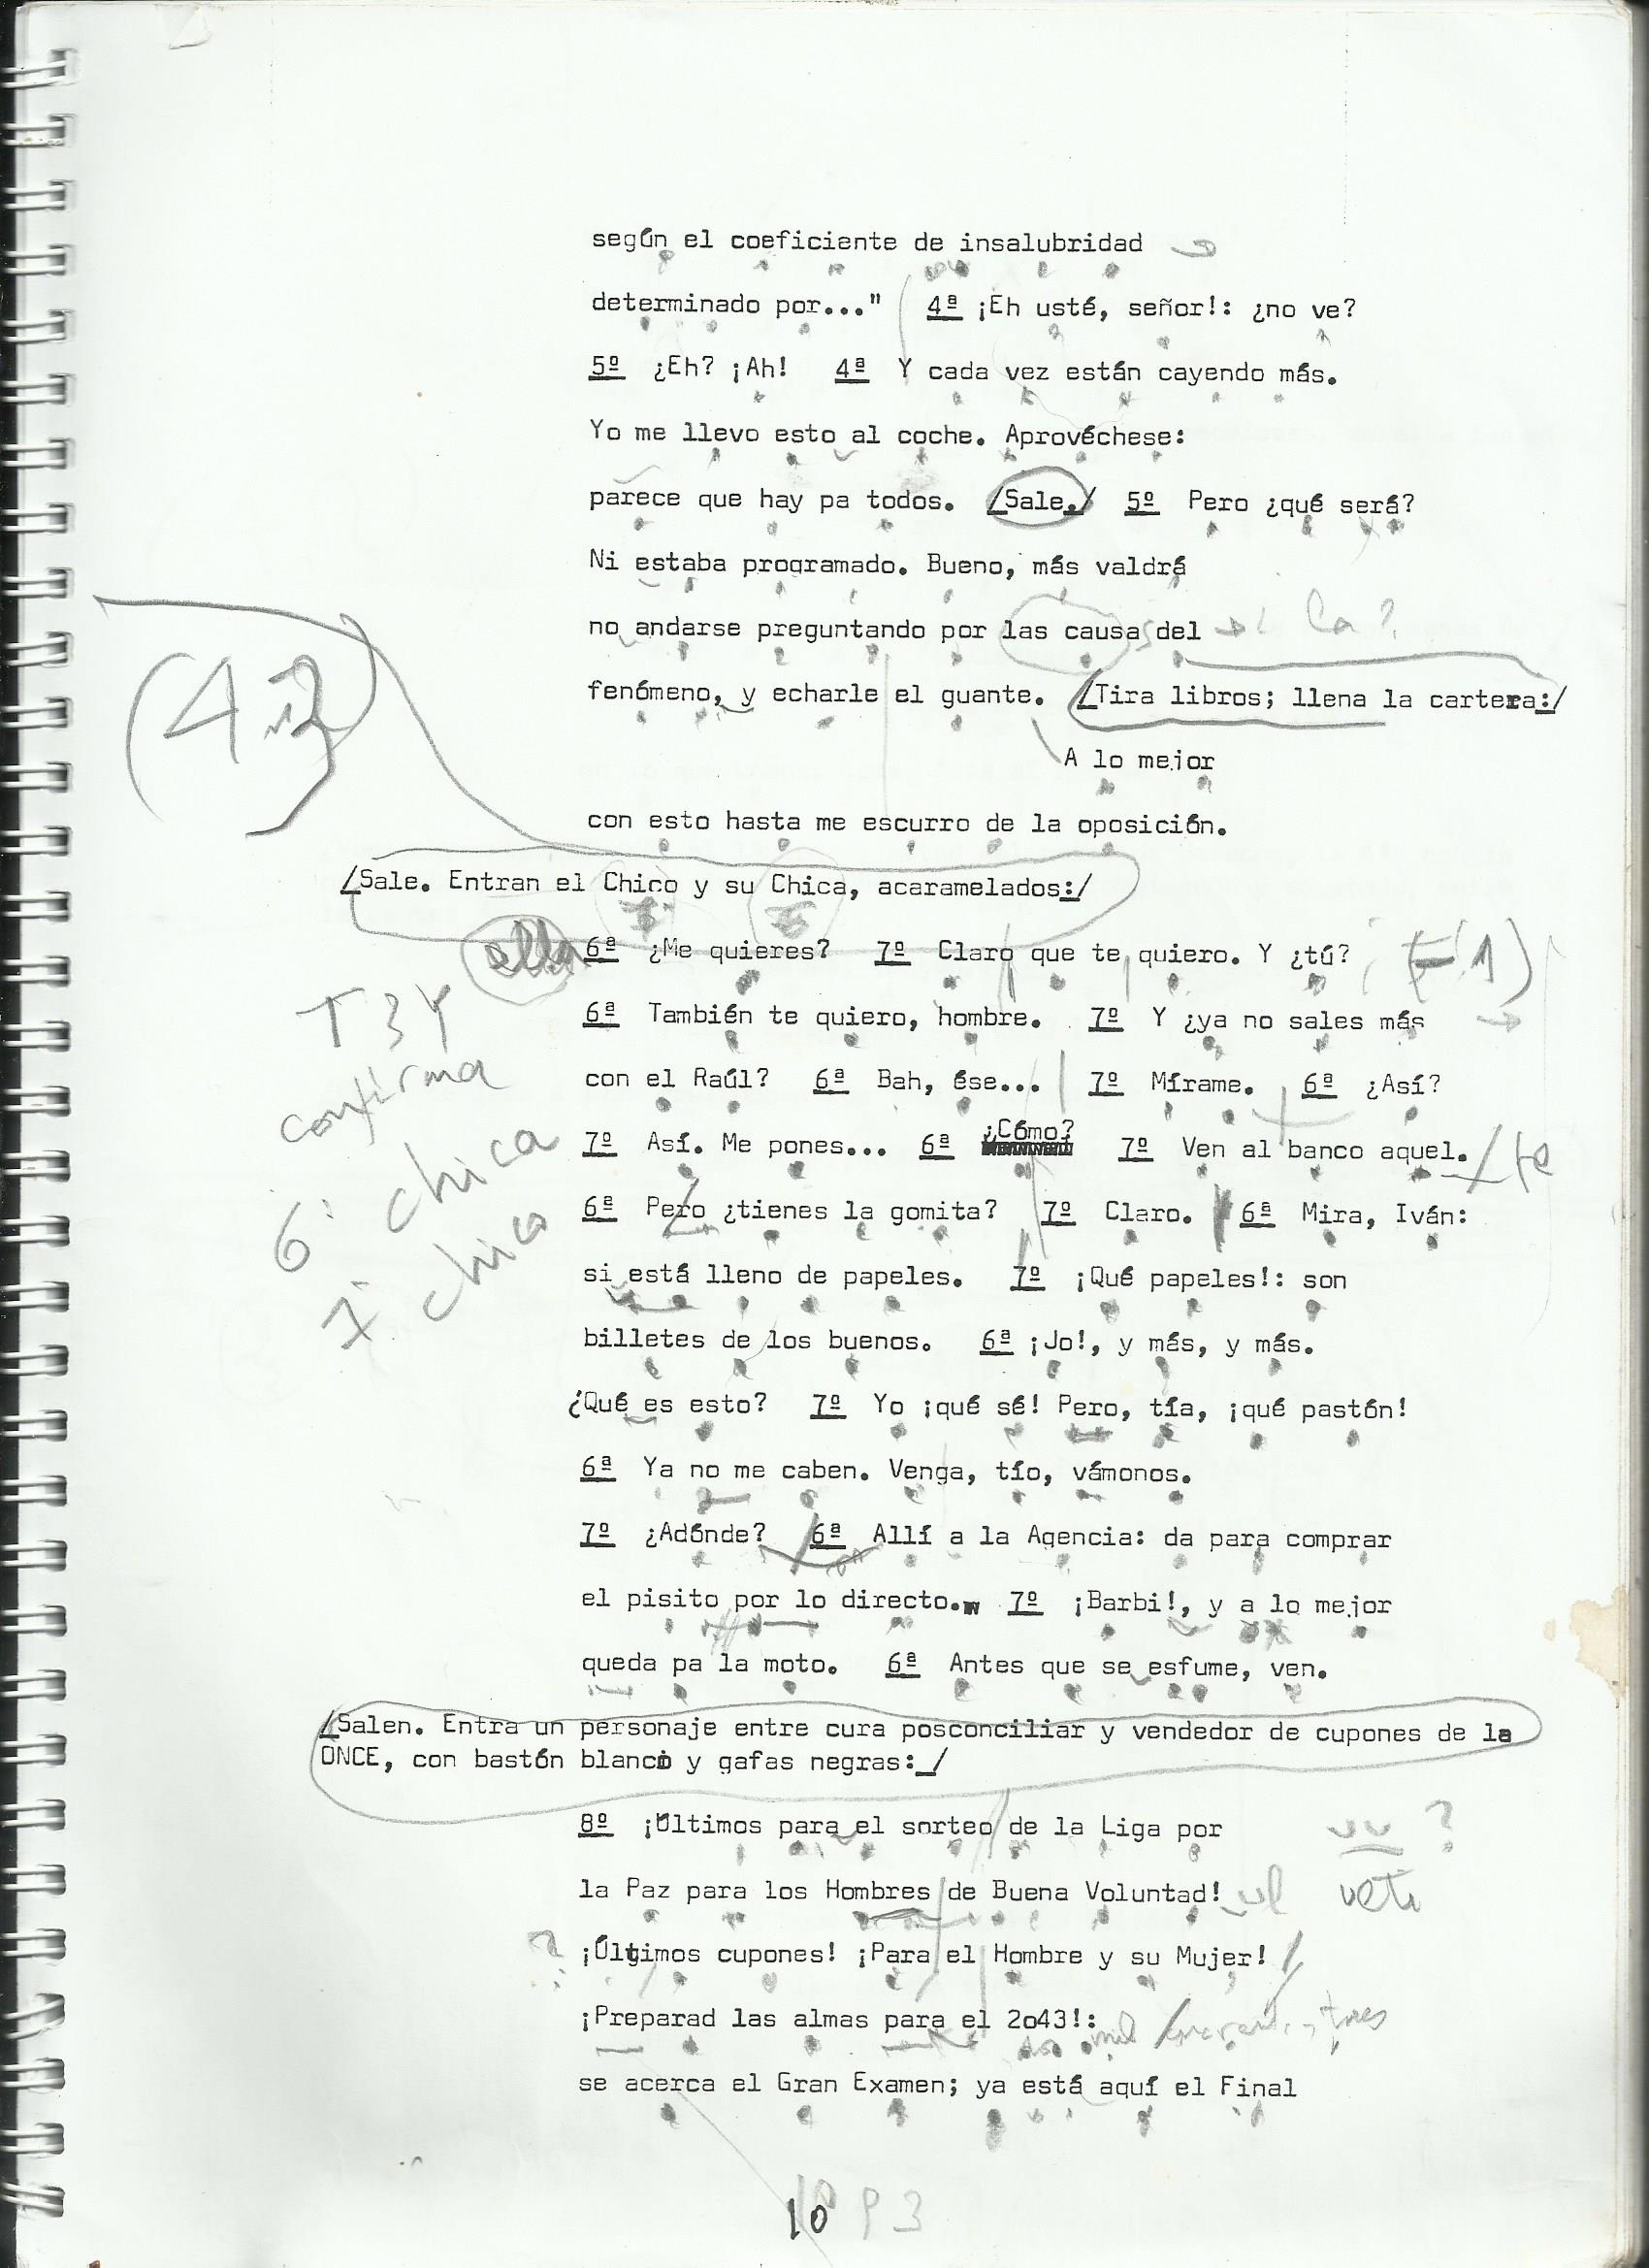 según el coeficiente de insalubridad
determinado por..." 4ª ¡Eh usté, señor!: ¿no ve?
5º ¿Eh? ¡Ah! 4ª Y cada vez están cayendo más.
Yo me llevo esto al coche. Aprovéchese:
parece que hay pa todos. /Sale./ 5º Pero ¿qué será?
Ni estaba programado. Bueno, más valdrá
no andarse preguntando por las causas del la?
fenómeno, y echarle el guante. /Tira libros; llena la cartera:/
(42)
A lo mejor
con esto hasta me escurro de la oposición.
/Sale. Entran el Chico y su Chica, acaramelados:/
ella 6ª ¿Me quieres? 7º Claro que te quiero. Y ¿tú? (-1)
6ª También te quiero, hombre. 7º Y ¿ya no sales más
con el Raúl? 6ª Bah, ése... 7º Mírame. 6ª ¿Así?
7º Así. Me pones... 6ª ¿Cómo? 7º Ven al banco aquel. te
6ª Pero ¿tienes la gomita? 7º Claro. 6ª Mira, Iván:
T 3 Y
confirma
6: chica
7: chico
si está lleno de papeles. 7º ¡Qué papeles!: son
billetes de los buenos. 6ª ¡Jo!, y más, y más.
¿Qué es esto? 7º Yo ¡qué sé! Pero, tía, ¡qué pastón!
6ª Ya no me caben. Venga, tío, vámonos.
7º ¿Adónde? 6ª Allí a la Agencia: da para comprar
el pisito por lo directo. 7º ¡Barbi!, y a lo mejor
queda pa la moto. 6ª Antes que se esfume, ven.
/Salen. Entra un personaje entre cura posconciliar y vendedor de cupones de la
ONCE, con bastón blanco y gafas negras:/
8º ¡Últimos para el sorteo de la Liga por ?
la Paz para los Hombres de Buena Voluntad!
? ¡Últimos cupones! ¡Para el Hombre y su Mujer!
¡Preparad las almas para el 2o43!: mil tres
se acerca el Gran Examen; ya está aquí el Final
10 P 3